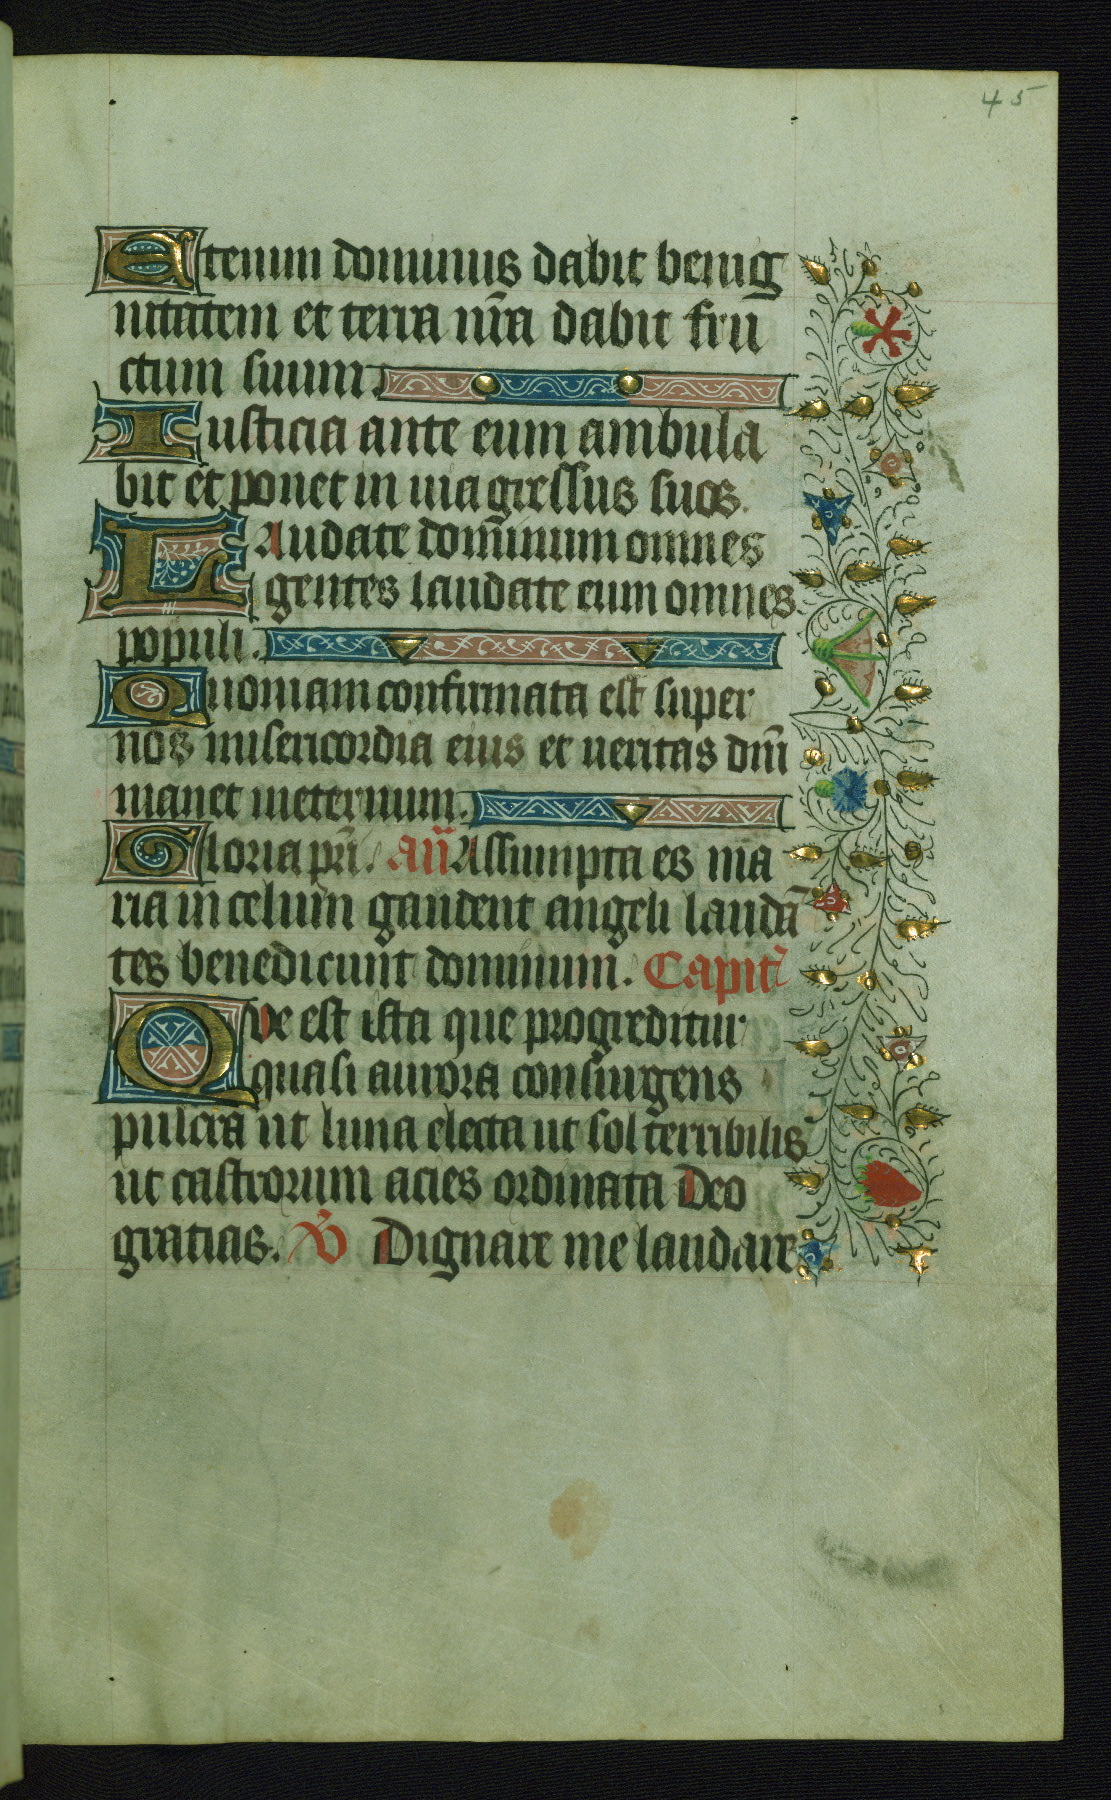 45
Etenim dominus dabit benig
nitatem et terra nr̄a dabit fru
ctum suum.
Iusticia ante eum ambula
bit et ponet in uia gressus suos.
LAudate dominum omnes
gentes laudate eum omnes
populi.
Quoniam confirmata est super
nos misericordia eius et ueritas dn̄i
manet ineternum.
Gloria pr̄i. an̄ Assumpta es ma
ria in celum gaudent angeli laudā
tes benedicunt dominum. Capitl̄
QVe est ista que progreditur
quasi aurora consurgens
pulcra ut luna electa ut sol terribilis
ut castrorum acies ordinata Deo
gratias. V̄ Dignare me laudare